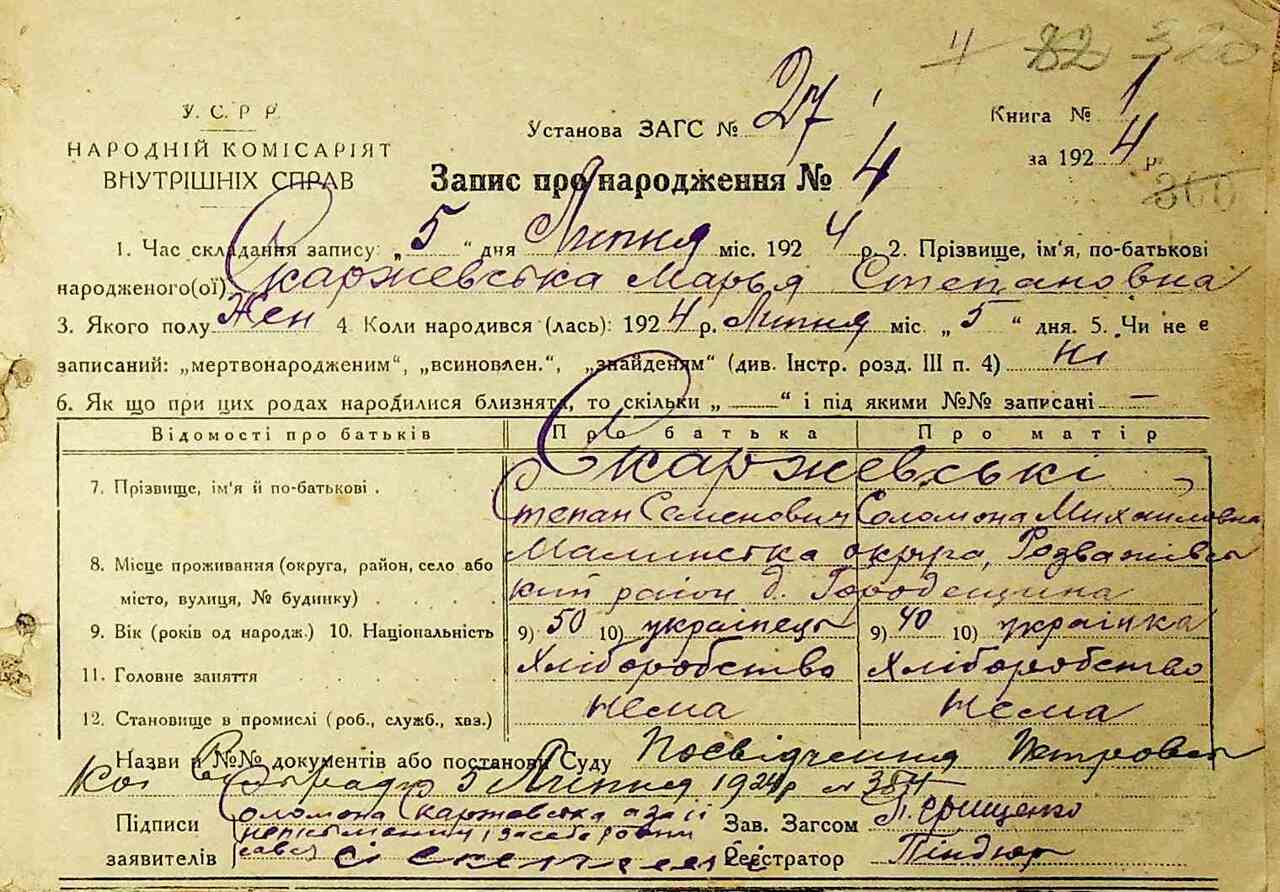 4 82 320
У. С. Р Р.
НАРОДНІЙ КОМІСАРІЯТ
ВНУТРІШНІХ СПРАВ
Установа ЗАГС № 27
Книга № 1
за 1924 р.
360
Запис про народження № 4
1. Час складання запису: „5“ дня Липня міс. 1924 р. 2. Прізвище, ім'я, по-батькові
народженого(ої) Скаржевська Марья Степановна
3. Якого полу Жен 4. Коли народився (лась): 1924 р. Липня міс. „5“ дня. 5. Чи не є
записаний: „мертвонародженим“, „всиновлен.“, „знайденям“ (див. Інстр. розд. III п. 4) Ні
6. Як що при цих родах народилися близнята, то скільки „—“ і під якими №№ записані —
Відомості про батьків Про батька Про матір
7. Прізвище, ім'я й по-батькові . Скаржевські
Степан Семенович Соломона Михаиловна
8. Місце проживання (округа, район, село або Малинстка округа, Розважівсь
місто, вулиця, № будинку) . . . . кий район д. Городещина
9. Вік (років од народж.) 10. Національність 9) 50 10) українець 9) 40 10) українка
11. Головне заняття Хліборобство Хліборобство
12. Становище в промислі (роб., служб., хвз.) Нема Нема
Назви й №№ документів або постанови Суду Посвідчення Петровсь
кої Сільради 5 Липня 1924 р №
Підписи Соломона Скаржовська а за її Зав. Загсом Грищенко
неписьменну
заявителів Реєстратор Піндюр